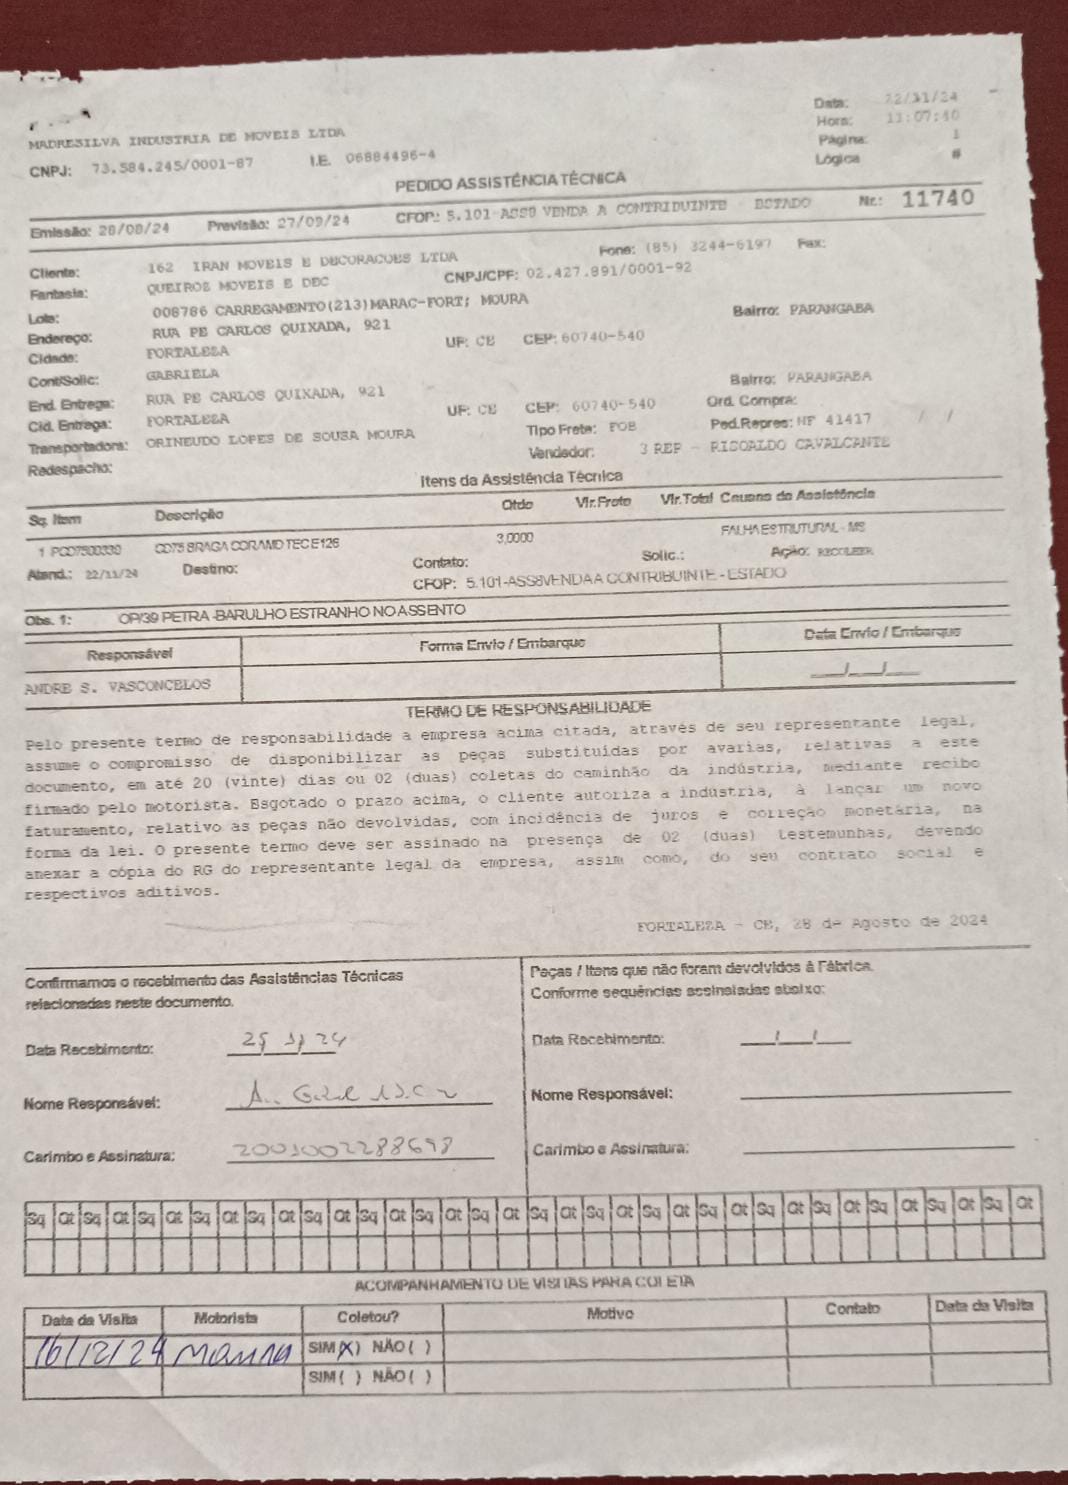 Data: 22/11/24
MADRESILVA INDUSTRIA DE MOVEIS LTDA Hora: 11:07:40
CNPJ: 73.584.245/0001-87 I.E. 06884496-4 Página: 1
PEDIDO ASSISTÊNCIA TÉCNICA Lógica #
Emissão: 28/08/24 Previsão: 27/09/24 CFOP: 5.101-ASS8 VENDA A CONTRIBUINTE - ESTADO Nr.: 11740
Cliente: 162 IRAN MOVEIS E DECORACOES LTDA Fone: (85) 3244-6197 Fax:
Fantasia: QUEIROZ MOVEIS E DEC CNPJ/CPF: 02.427.891/0001-92
Lote: 008786 CARREGAMENTO(213)MARAC-FORT; MOURA
Endereço: RUA PE CARLOS QUIXADA, 921 Bairro: PARANGABA
Cidade: FORTALEZA UF: CE CEP: 60740-540
Cont/Solic: GABRIELA
End. Entrega: RUA PE CARLOS QUIXADA, 921 Bairro: PARANGABA
Cid. Entrega: FORTALEZA UF: CE CEP: 60740-540 Ord. Compra:
Transportadora: ORINEUDO LOPES DE SOUSA MOURA Tipo Frete: FOB Ped.Repres: NF 41417 / /
Redespacho: Vendedor: 3 REP - RISOALDO CAVALCANTE
Itens da Assistência Técnica
Sq. Item Descrição Qtde Vlr.Frete Vlr.Total Causas da Assistência
1 PCD7500330 CD75 BRAGA CORAMD TEC E126 3,0000 FALHA ESTRUTURAL - MS
Atend.: 22/11/24 Destino: Contato: Solic.: Ação: RECOLHER
CFOP: 5.101-ASS8 VENDA A CONTRIBUINTE - ESTADO
Obs. 1: OP/39 PETRA -BARULHO ESTRANHO NO ASSENTO
Responsável Forma Envio / Embarque Data Envio / Embarque
ANDRE S. VASCONCELOS __/__/__
TERMO DE RESPONSABILIDADE
Pelo presente termo de responsabilidade a empresa acima citada, através de seu representante legal,
assume o compromisso de disponibilizar as peças substituídas por avarias, relativas a este
documento, em até 20 (vinte) dias ou 02 (duas) coletas do caminhão da indústria, mediante recibo
firmado pelo motorista. Esgotado o prazo acima, o cliente autoriza a indústria, à lançar um novo
faturamento, relativo as peças não devolvidas, com incidência de juros e correção monetária, na
forma da lei. O presente termo deve ser assinado na presença de 02 (duas) testemunhas, devendo
anexar a cópia do RG do representante legal da empresa, assim como, do seu contrato social e
respectivos aditivos.
FORTALEZA - CE, 28 de Agosto de 2024
Confirmamos o recebimento das Assistências Técnicas
relacionadas neste documento.
Peças / Itens que não foram devolvidos à Fábrica.
Conforme sequências assinaladas abaixo:
Data Recebimento: Data Recebimento: __/__/__
Nome Responsável: Nome Responsável:
Carimbo e Assinatura: 2001002288698 Carimbo e Assinatura:
Sq Qt Sq Qt Sq Qt Sq Qt Sq Qt Sq Qt Sq Qt Sq Qt Sq Qt Sq Qt Sq Qt Sq Qt Sq Qt Sq Qt Sq Qt Sq Qt Sq Qt Sq Qt
ACOMPANHAMENTO DE VISITAS PARA COLETA
Data da Visita Motorista Coletou? Motivo Contato Data da Visita
16/12/24 SIM(X) NÃO( )
SIM( ) NÃO( )